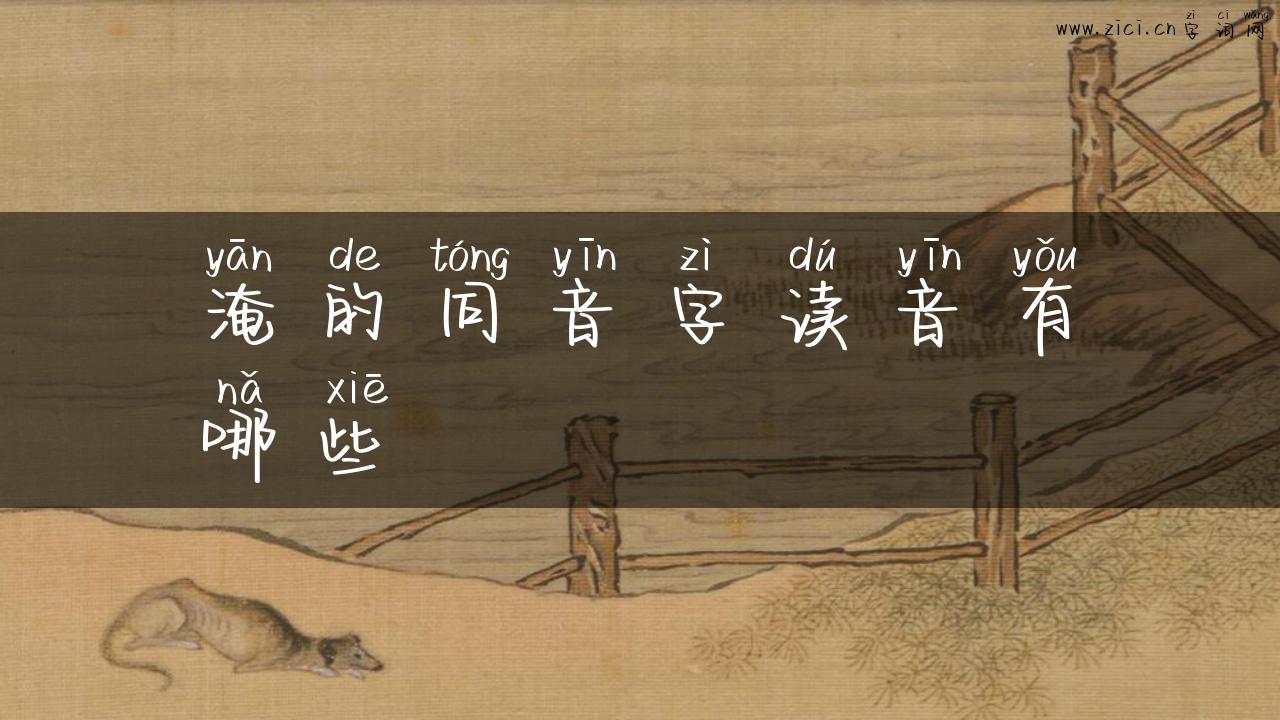 zi ci wang
www.zici.cn 字词网
yān de tóng yīn zì dú yīn yǒu
淹的同音字读音有
nǎ xiē
哪些